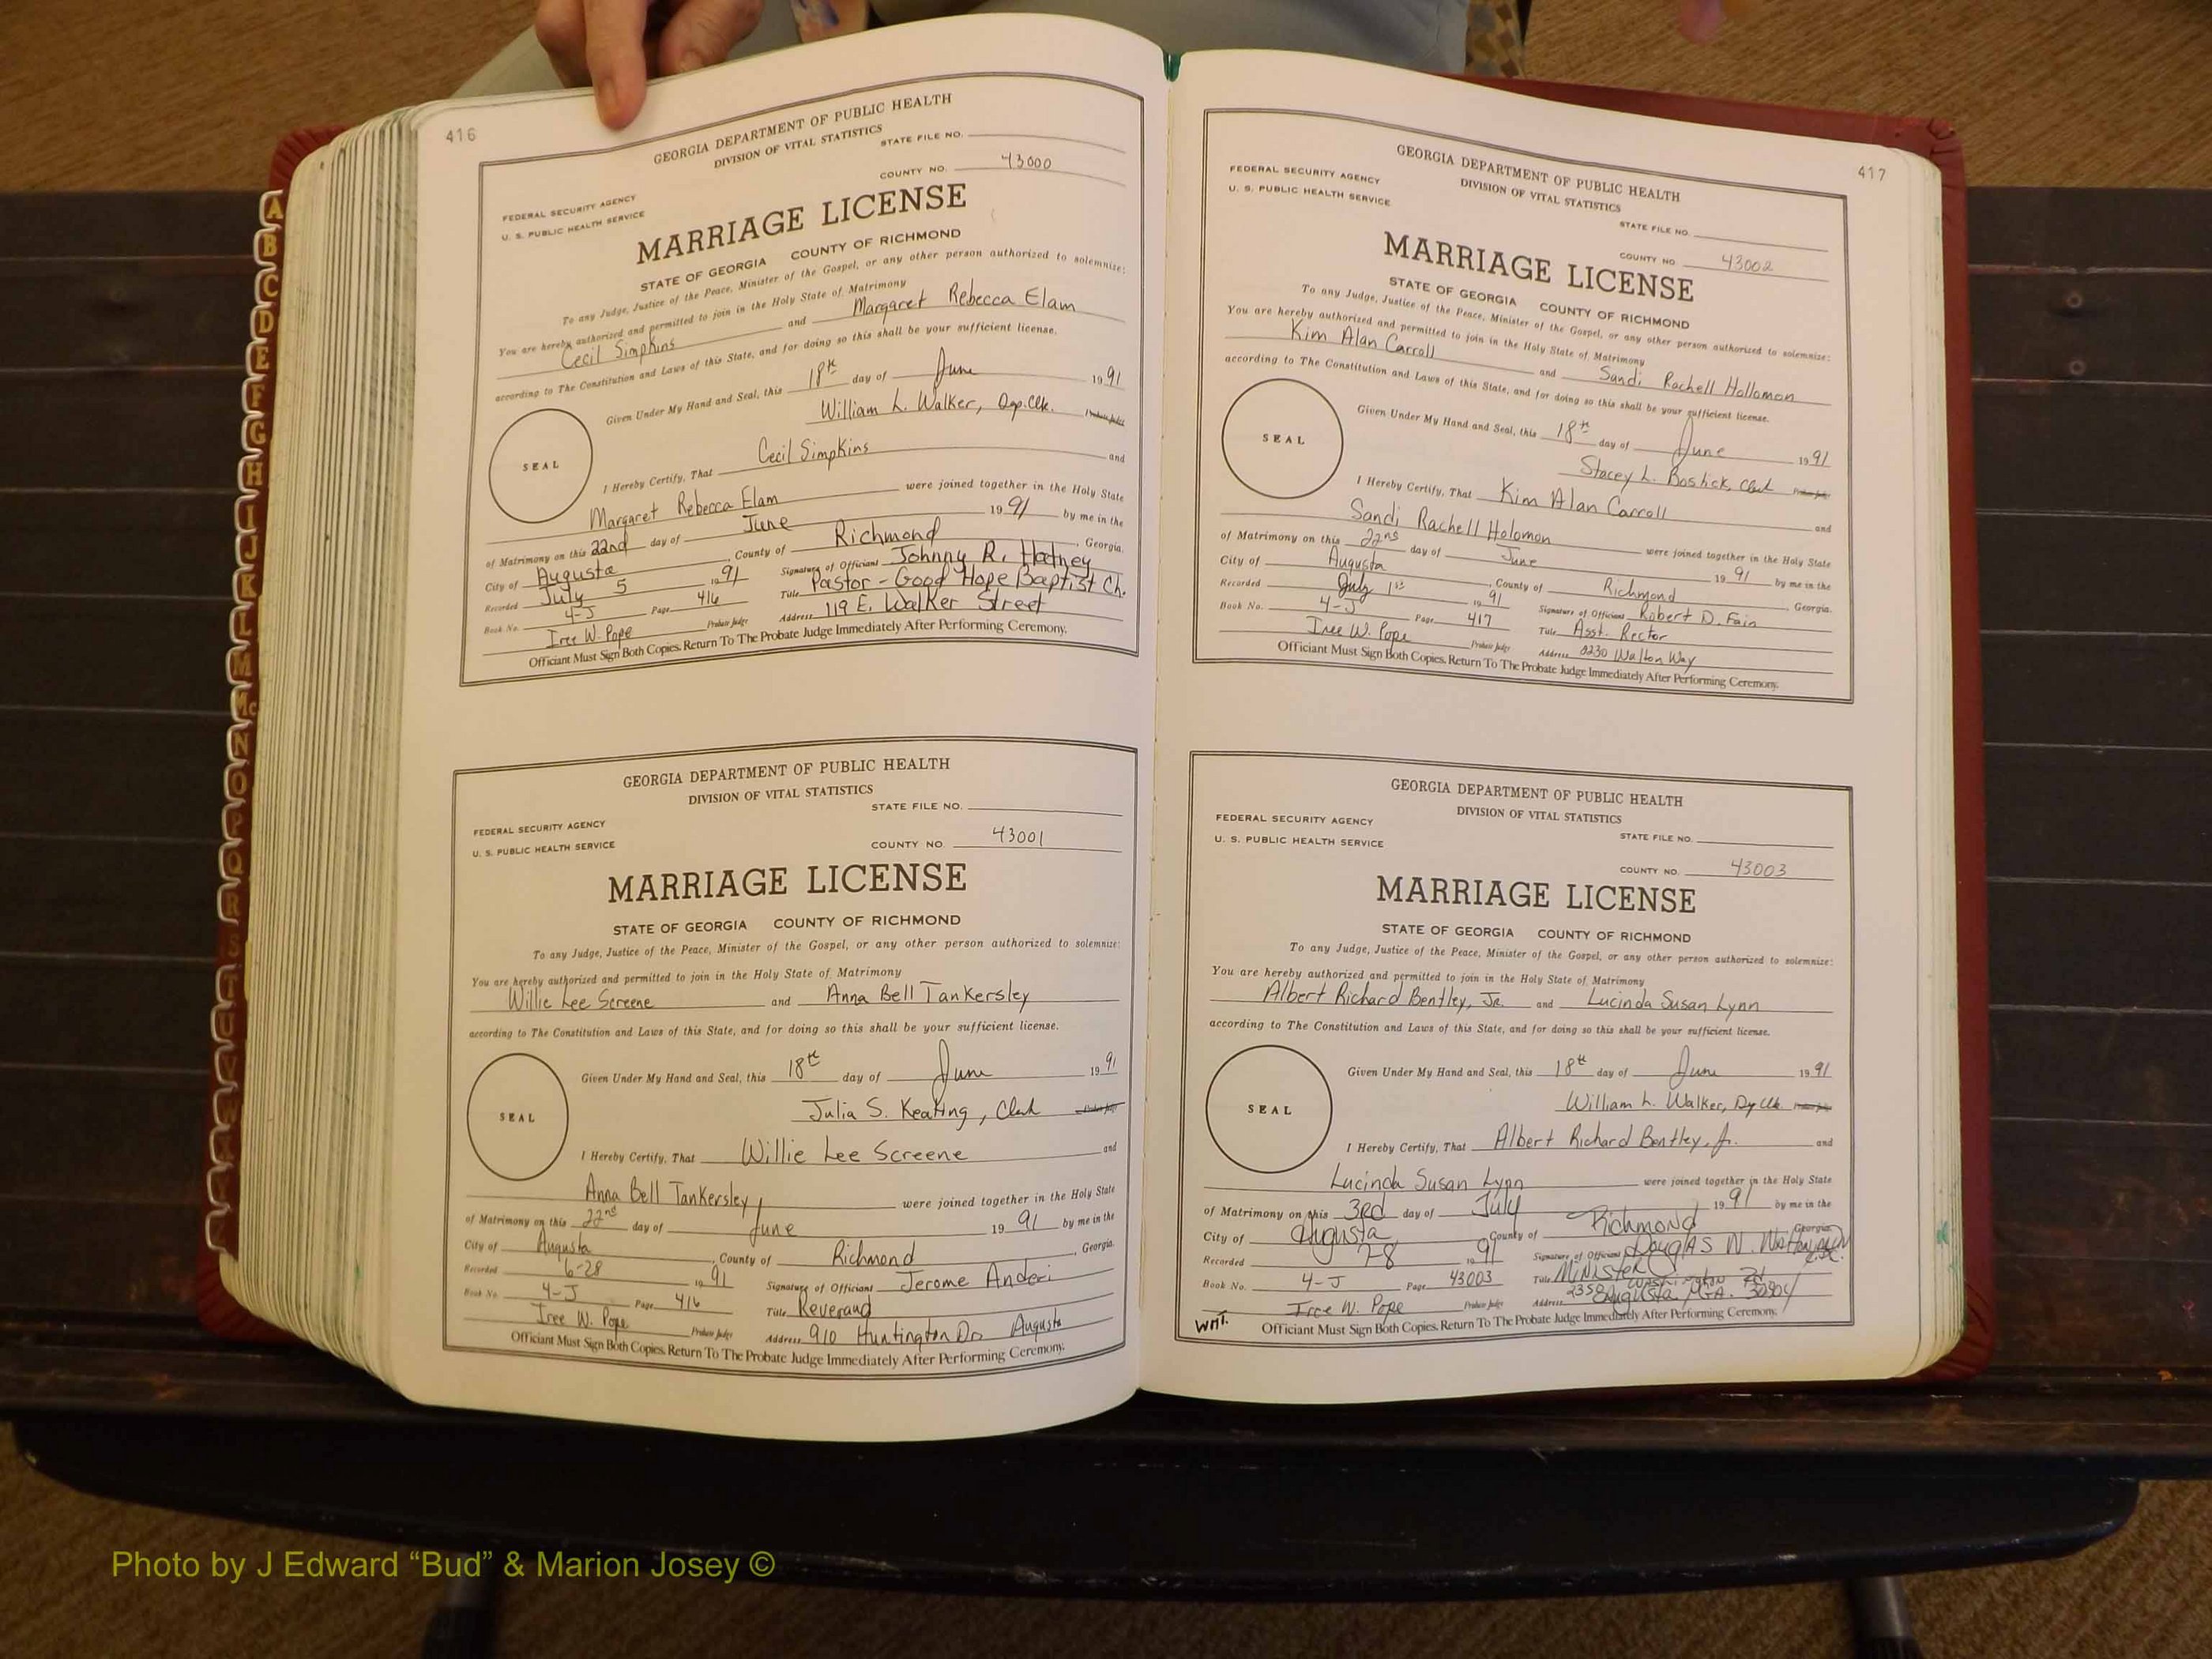 416
GEORGIA DEPARTMENT OF PUBLIC HEALTH
DIVISION OF VITAL STATISTICS
STATE FILE NO.
COUNTY NO. 43000
FEDERAL SECURITY AGENCY
U. S. PUBLIC HEALTH SERVICE
MARRIAGE LICENSE
STATE OF GEORGIA COUNTY OF RICHMOND
To any Judge, Justice of the Peace, Minister of the Gospel, or any other person authorized to solemnize:
You are hereby authorized and permitted to join in the Holy State of Matrimony
Cecil Simpkins and Margaret Rebecca Elam
according to The Constitution and Laws of this State, and for doing so this shall be your sufficient license.
Given Under My Hand and Seal, this 18th day of June 1991
William L. Walker, Dep. Clk. Probate Judge
SEAL
I Hereby Certify, That Cecil Simpkins and
Margaret Rebecca Elam were joined together in the Holy State
of Matrimony on this 22nd day of June 1991 by me in the
City of Augusta County of Richmond, Georgia.
Recorded July 5 1991 Signature of Officiant Johnny R. Hatney
Book No. 4-J Page 416 Title Pastor - Good Hope Baptist Ch.
Iree W. Pope Probate Judge Address 119 E. Walker Street
Officiant Must Sign Both Copies. Return To The Probate Judge Immediately After Performing Ceremony.
GEORGIA DEPARTMENT OF PUBLIC HEALTH
DIVISION OF VITAL STATISTICS
STATE FILE NO.
FEDERAL SECURITY AGENCY
U. S. PUBLIC HEALTH SERVICE
COUNTY NO. 43001
MARRIAGE LICENSE
STATE OF GEORGIA COUNTY OF RICHMOND
To any Judge, Justice of the Peace, Minister of the Gospel, or any other person authorized to solemnize:
You are hereby authorized and permitted to join in the Holy State of Matrimony
Willie Lee Screene and Anna Bell Tankersley
according to The Constitution and Laws of this State, and for doing so this shall be your sufficient license.
Given Under My Hand and Seal, this 18th day of June 1991
Julia S. Keating, Clerk Probate Judge
SEAL
I Hereby Certify, That Willie Lee Screene and
Anna Bell Tankersley were joined together in the Holy State
of Matrimony on this 22nd day of June 1991 by me in the
City of Augusta, County of Richmond, Georgia.
Recorded 6-28 1991 Signature of Officiant Jerome
Book No. 4-J Page 416 Title Reverand
Iree W. Pope Probate Judge Address 910 Huntington Dr Augusta
Officiant Must Sign Both Copies. Return To The Probate Judge Immediately After Performing Ceremony.
417
GEORGIA DEPARTMENT OF PUBLIC HEALTH
DIVISION OF VITAL STATISTICS
FEDERAL SECURITY AGENCY
U. S. PUBLIC HEALTH SERVICE
STATE FILE NO.
COUNTY NO. 43002
MARRIAGE LICENSE
STATE OF GEORGIA COUNTY OF RICHMOND
To any Judge, Justice of the Peace, Minister of the Gospel, or any other person authorized to solemnize:
You are hereby authorized and permitted to join in the Holy State of Matrimony
Kim Alan Carroll and Sandi Rachell Hollomon
according to The Constitution and Laws of this State, and for doing so this shall be your sufficient license.
Given Under My Hand and Seal, this 18th day of June 1991
Stacey L. Bostick, Clerk Probate Judge
SEAL
I Hereby Certify, That Kim Alan Carroll and
Sandi Rachell Holomon were joined together in the Holy State
of Matrimony on this 22nd day of June 1991 by me in the
City of Augusta, County of Richmond, Georgia.
Recorded July 1st 1991 Signature of Officiant Robert D. Fain
Book No. 4-J Page 417 Title Asst. Rector
Iree W. Pope Probate Judge Address 2230 Walton Way
Officiant Must Sign Both Copies. Return To The Probate Judge Immediately After Performing Ceremony.
GEORGIA DEPARTMENT OF PUBLIC HEALTH
DIVISION OF VITAL STATISTICS
FEDERAL SECURITY AGENCY
U. S. PUBLIC HEALTH SERVICE
STATE FILE NO.
COUNTY NO. 43003
MARRIAGE LICENSE
STATE OF GEORGIA COUNTY OF RICHMOND
To any Judge, Justice of the Peace, Minister of the Gospel, or any other person authorized to solemnize:
You are hereby authorized and permitted to join in the Holy State of Matrimony
Albert Richard Bentley, Jr. and Lucinda Susan Lynn
according to The Constitution and Laws of this State, and for doing so this shall be your sufficient license.
Given Under My Hand and Seal, this 18th day of June 1991
William L. Walker, Dy Clk Probate Judge
SEAL
I Hereby Certify, That Albert Richard Bentley, Jr. and
Lucinda Susan Lynn were joined together in the Holy State
of Matrimony on this 3rd day of July 1991 by me in the
City of Augusta County of Richmond Georgia.
Recorded 7-8 1991 Signature of Officiant Douglas W.
Book No. 4-J Page 43003 Title Minister
Iree W. Pope Probate Judge Address 2358 Washington Rd
Augusta GA. 30904
WMT.
Officiant Must Sign Both Copies. Return To The Probate Judge Immediately After Performing Ceremony.
A
B
C
D
E
F
G
H
I
J
K
L
M
Mc
N
O
P
Q
R
S
T
U
V
W
Photo by J Edward “Bud” & Marion Josey ©